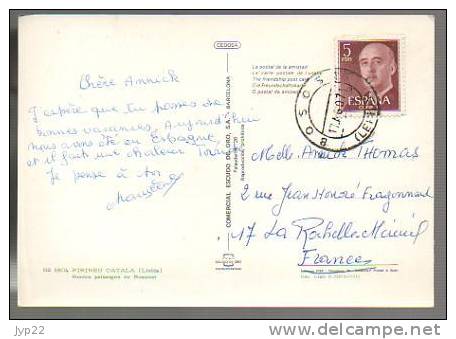 CEDOSA
Chère Annick
J'espère que tu passes de
bonnes vacances, Aujourd'hui
nous avons été en Espagne,
et il fait une chaleur
Je pense à toi
BE PIRINEU CATALA (Lleida)
COMERCIAL ESCUDO DE ORO, S.A. BARCELONA
La postal de la amistad
La carte postale de l'amitié
The friendship post card
Die Freundschaftskarte
5
PTAS
ESPAÑA
BOSOST
(LERIDA)
Melle Annick THOMAS
2 rue Jean Honoré Fragonnard
17 La Rochelle-Mireuil
France
jpyr22
http://www.delcampe.net